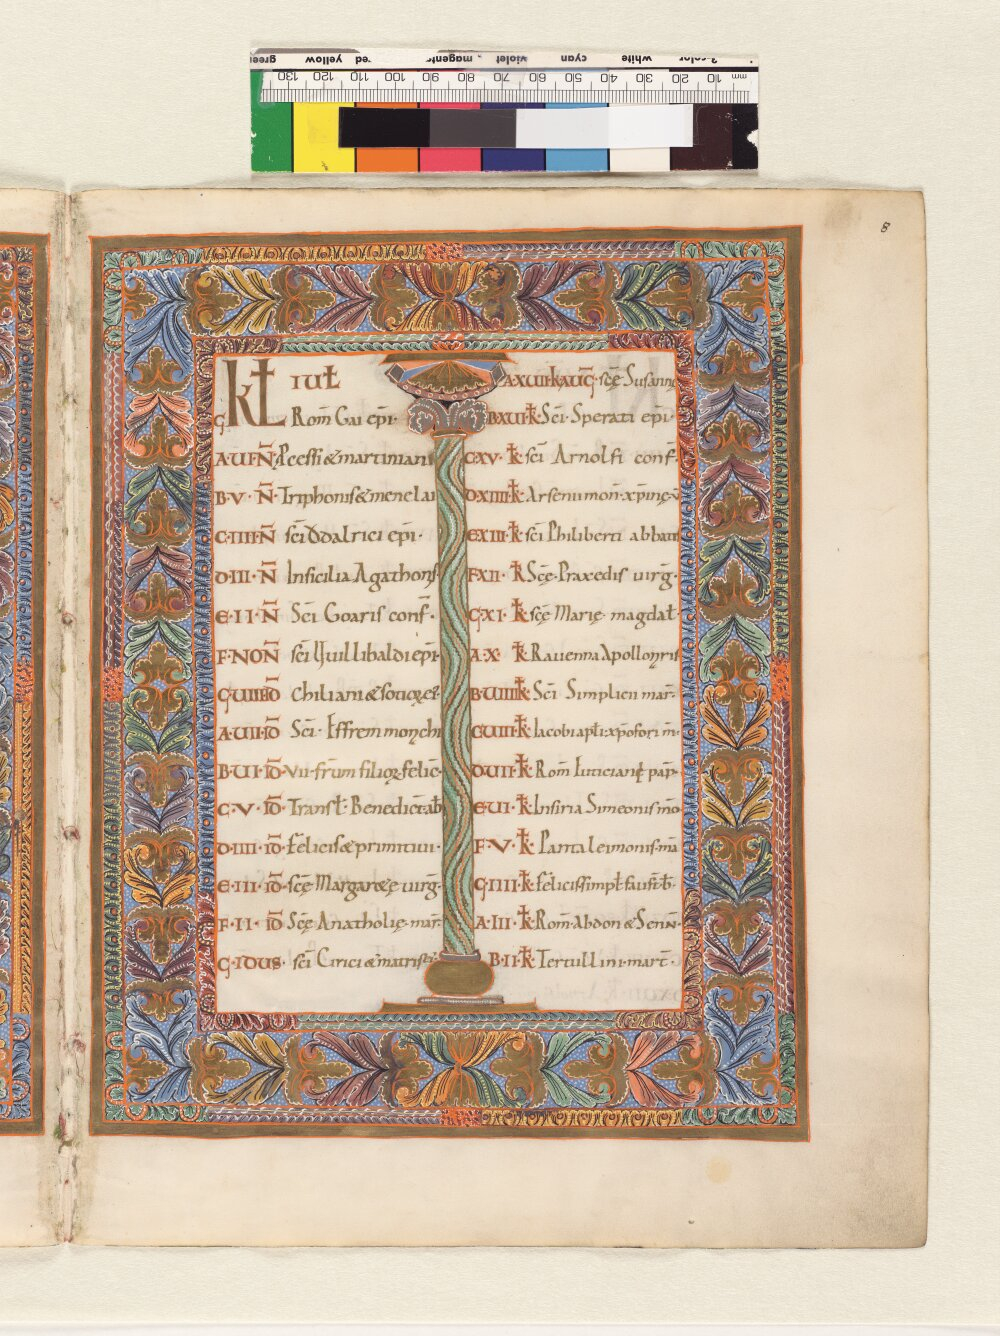 green yellow red magenta violet cyan white 3-color
130 120 110 100 90 80 70 60 50 40 30 20 10 mm
8
kł iuł
G Rom̄ Gai ep̄i·
A·UI·N̄ Pcessi & martiniani
B·V·N̄· Triphonis & menelai
C·IIII·N̄ sc̄i Odalrici ep̄i·
D·III·N̄ In sicilia Agathonis
E·II·N̄ Sc̄i Goaris conf̄·
F·NON̄ sc̄i Uuillibaldi ep̄i
G·UIII·ID̄ Chiliani & socioꝝ ei'
A·UII·ID̄ Sc̄i· Effrem monachi
B·UI·ID̄· VII· fr̄um filioꝝ felic̄·
C·V·ID̄· Transł· Benedicti ab
D·IIII·ID̄· Felicis & primitiui·
E·III·ID̄· sc̄ę Margaretę uirḡ·
F·II·ID̄ Sc̄ę Anatholię mar̄·
G·IDUS· sc̄i Cirici & matris
A·XUII·k̄·AUG̅· sc̄ę Susanne
B·XUI·k̄· Sc̄i· Sperati ep̄i·
C·XV·k̄· sc̄i Arnolfi conf̄·
D·XIIII·k̄· Arsenii mon̄·
E·XIII·k̄· sc̄i Philiberti abbatis
F·XII·k̄ Sc̄ę· Praxedis uirḡ·
G·XI·k̄· sc̄ę Marię magdał·
A·X·k̄ Rauenna Apollonaris
B·UIIII·k̄· Sc̄i Simplicii mar̄·
C·UIII·k̄· Iacobi apłi· xp̄ofori m̄·
D·UII·k̄· Rom̄
E·UI·k̄· In siria Simeonis mo
F·V·k̄· Pantaleimonis m̄a
G·IIII·k̄· felicis simpł faust̄ b·
A·III·k̄· Rom̄ Abdon & Senn̄·
B·II·k̄ Tertullini· mart̄·